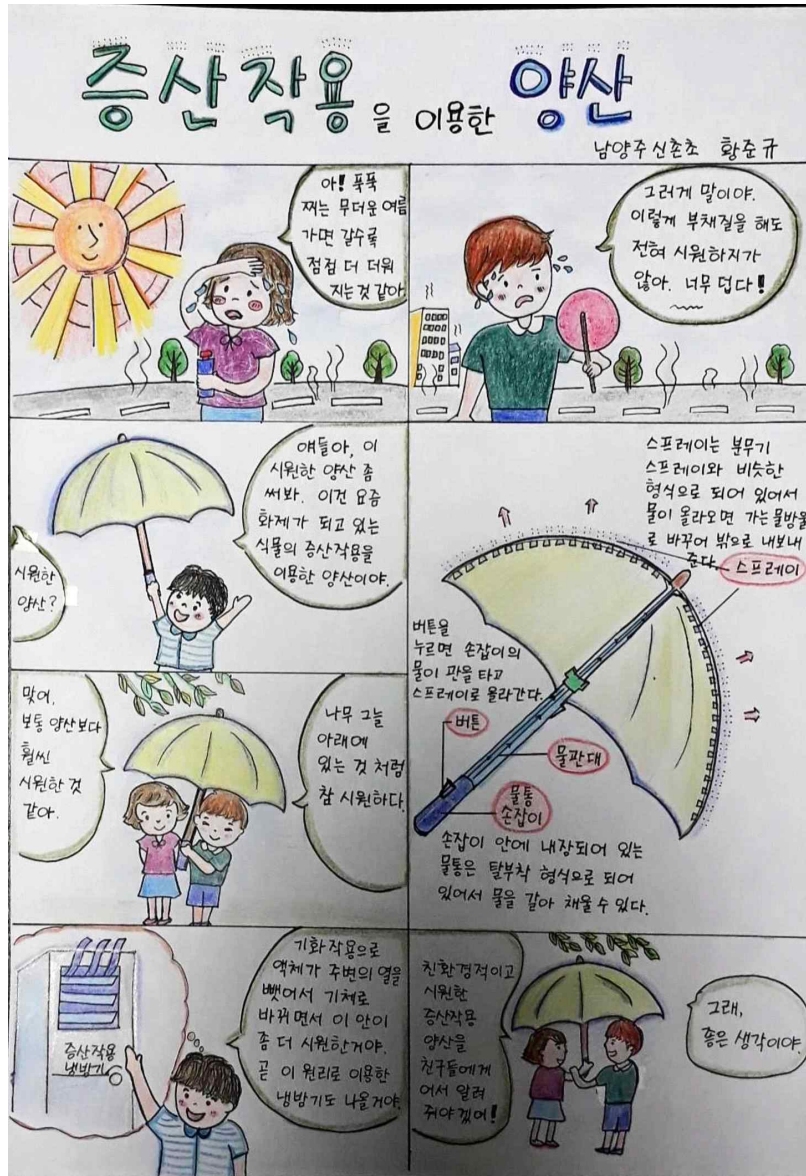 증산작용을 이용한 양산
남양주 신촌초 황준규
아! 푹푹
찌는 무더운 여름
가면 갈수록
점점 더 더워
지는 것 같아
그러게 말이야.
이렇게 부채질을 해도
전혀 시원하지가
않아. 너무 덥다!
시원한
양산?
얘들아, 이
시원한 양산 좀
써봐. 이건 요즘
화제가 되고 있는
식물의 증산작용을
이용한 양산이야.
스프레이는 분무기
스프레이와 비슷한
형식으로 되어 있어서
물이 올라오면 가는 물방울
로 바꾸어 밖으로 내보내
준다.
스프레이
버튼을
누르면 손잡이의
물이 관을 타고
스프레이로 올라간다.
버튼
물관대
물통
손잡이
손잡이 안에 내장되어 있는
물통은 탈부착 형식으로 되어
있어서 물을 갈아 채울 수 있다.
맞어,
보통 양산보다
훨씬
시원한 것
같아.
나무 그늘
아래에
있는 것 처럼
참 시원하다.
증산작용
냉방기
기화작용으로
액체가 주변의 열을
뺏어서 기체로
바뀌면서 이 안이
좀 더 시원한거야.
곧 이 원리로 이용한
냉방기도 나올거야.
친환경적이고
시원한
증산작용
양산을
친구들에게
어서 알려
줘야겠어!
그래,
좋은 생각이야.